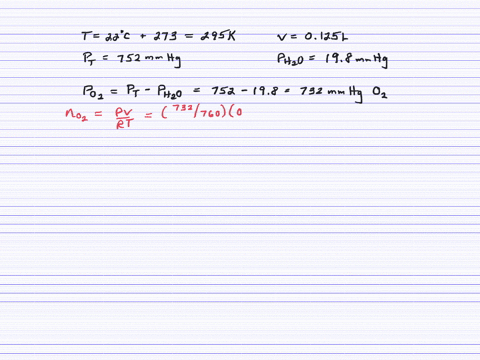 T = 22°C + 273 = 295K V = 0.125L
P_T = 752 mm Hg P_H2O = 19.8 mm Hg
P_O2 = P_T - P_H2O = 752 - 19.8 = 732 mm Hg O2
n_O2 = PV/RT = (732/760)(0